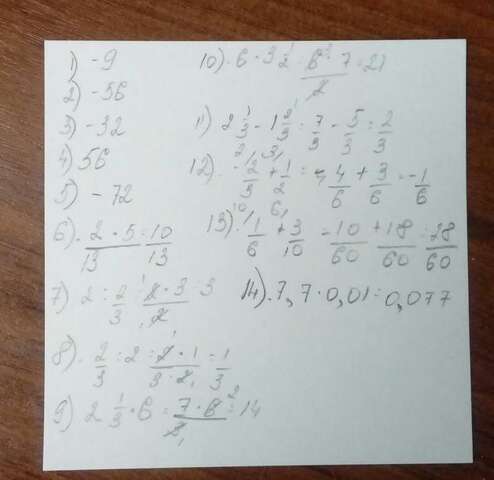 1) -9
2) -56
3) -32
4) 56
5) -72
6). 2·5/13 = 10/13
7) 2 : 2/3 = 2·3/2 = 3
8). 2/3 : 2 = 2·1/3·2 = 1/3
9) 2 1/3 · 6 = 7·6/3 = 14
10). 6 · 3 1/2 = 6·7/2 = 21
11) 2 1/3 - 1 2/3 = 7/3 - 5/3 = 2/3
12). -2/3 + 1/2 = -4/6 + 3/6 = -1/6
13). 1/6 + 3/10 = 10/60 + 18/60 = 28/60
14). 7,7·0,01 = 0,077